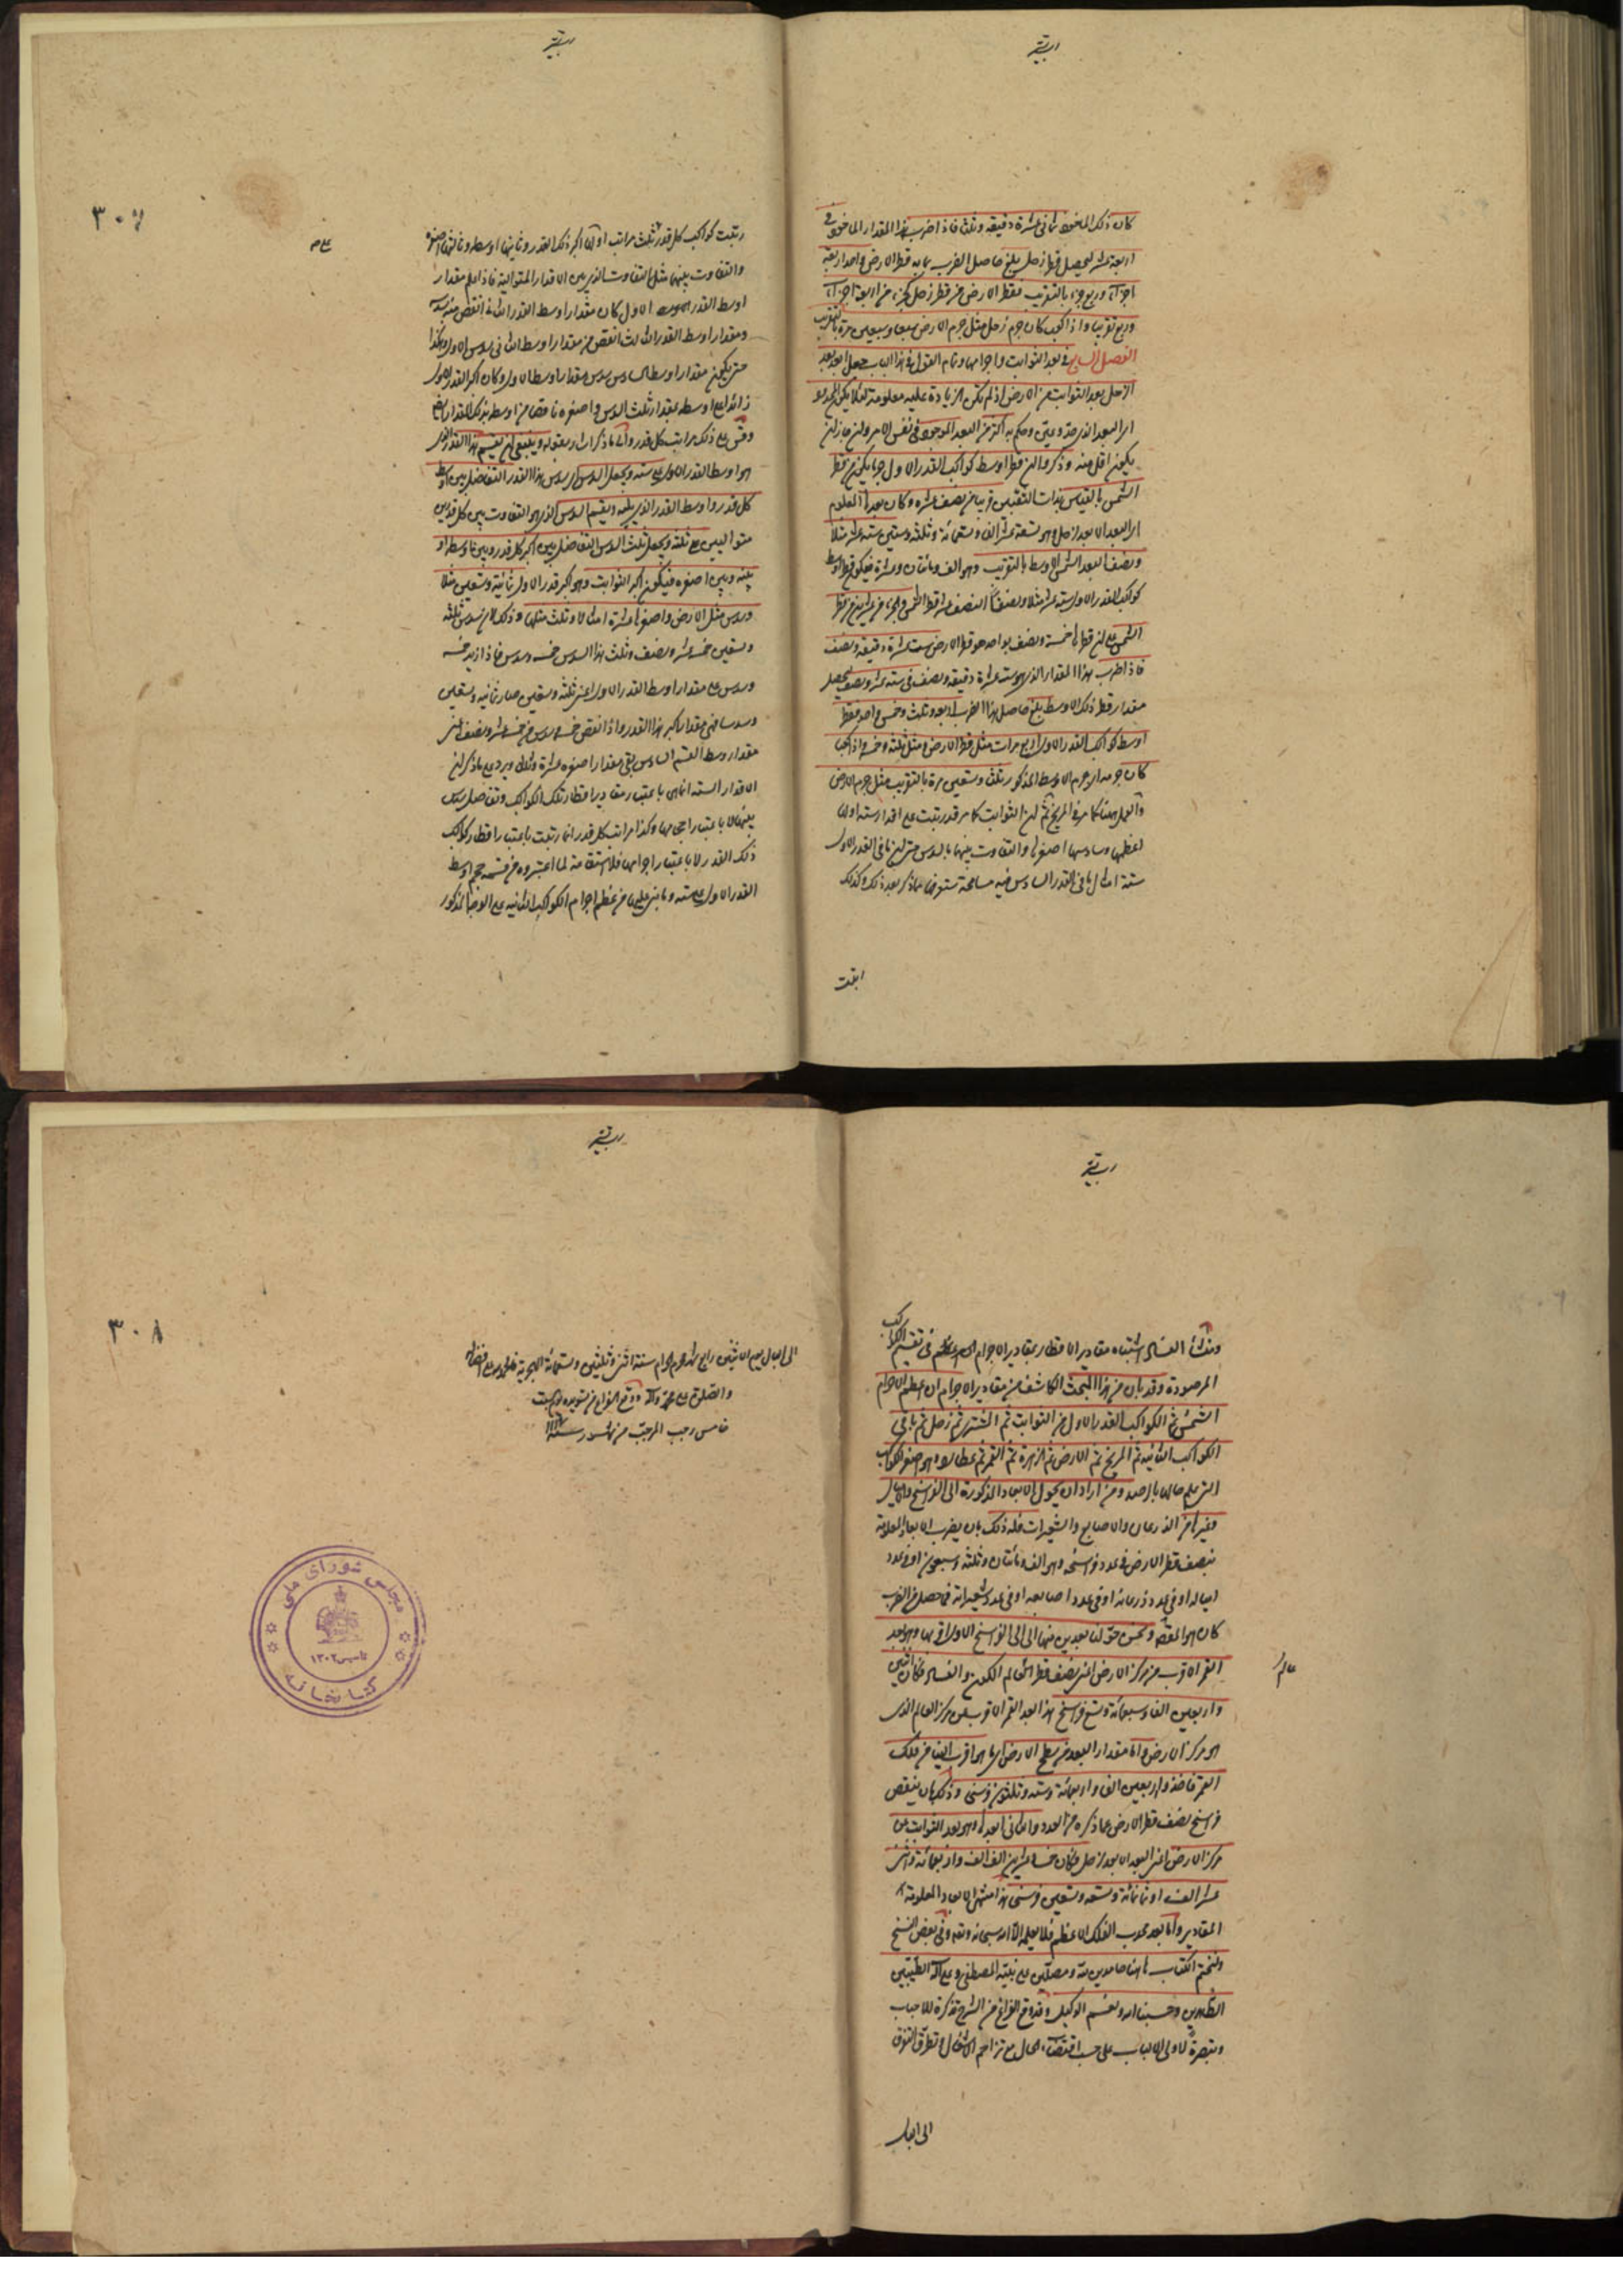 كان ذلك المأخوذ ثمانى عشرة دقيقة وثلث فاذا ضرب هذا المقدار المأخوذ فى
اربعة عشر ليحصل قطر زحل بلغ حاصل الضرب ما به قطر الارض واحد اربعة
اجزآء وربع جزء بالتقريب فقطر الارض من قطر زحل كجزء من اربعة اجزآء
وربع تقريبا واذا كعب كان جرم زحل مثل جرم الارض سبعا وسبعين مرة بالتقريب
الفصل السابع فى بعد الثوابت واجرامها وتمام القول فى هذا الباب جعل ابعد بعد
الزحل بعد الثوابت من الارض اذ لم تكن الزيادة عليه معلومة لئلا يكون
يكون اقل منه وذكروا ان قطر اوسط كواكب القدر الاول
الشمس بالقياس بذات الثقبتين قريبا من نصف عشره وكان بعدها المعلوم
اى البعد الابعد لزحل وهو تسعة عشر الف وتسعمائة وثلثة وستين ستة عشر مثلا
ونصفا لبعد الشمس الاوسط بالتقريب وهو الف ومائتان وعشرة فيكون قطر اوسط
كواكب القدر الاول ستة عشر مثلا ونصفا لنصف عشر قطر الشمس
الشمس على ان قطرها خمسة ونصف بواحد هو قطر الارض ست عشرة دقيقة ونصف
فاذا ضرب هذا المقدار الذى هو ستة عشرة دقيقة ونصف فى ستة عشر ونصف ليحصل
مقدار قطر ذلك الاوسط بلغ حاصل هذا الضرب اربعة وثلث وخمس واحد فقطر
اوسط كواكب القدر الاول اربع مرات مثل قطر الارض ومثل ثلثه وخمسه واذا كعب
كان جرمه اى جرم الاوسط المذكور ثلث وتسعين مرة بالتقريب مثل جرم الارض
والعمل ههنا كما مر فى المريخ ثم ان الثوابت كما مر قد رتبت على اقدار ستة اولها
اعظمها وسادسها اصغرها والتفاوت بينهما بالسدس حتى ان ما فى القدر الاول
ستة امثال ما فى القدر السادس فيه مسامحة ستعرفها مما ذكر بعد ذلك وكذلك
رتبت كواكب كل قدر ثلث مراتب اولها اكبر ذلك القدر وثانيها اوسطه وثالثها اصغره
والتفاوت بينهما مثل التفاوت الذى بين الاقدار المتوالية فاذا علم مقدار
اوسط القدر الاول كان مقدار اوسط القدر الثانى انقص منه بسدسه
ومقدار اوسط القدر الثالث انقص من مقدار اوسط الثانى بسدس الاول وهكذا
حتى يكون مقدار اوسط السادس سدس مقدار اوسط الاول وكان اكبر القدر الاول
زائدا على اوسطه بمقدار ثلث السدس واصغره ناقصا من اوسطه بذلك المقدار ايضا
وقس على ذلك مراتب كل قدر والى ما ذكرنا اشار بقوله وينبغى ان يقسم هذا القدر الذى
هو اوسط القدر الاول على ستة ويجعل السدس اى سدس هذا القدر التفاضل بين اوسط
كل قدر واوسط القدر الذى يليه ويقسم السدس الذى هو التفاوت بين كل قدرين
متواليين على ثلثة ويجعل ثلث السدس التفاضل بين اكبر كل قدر وبين اوسطه او
بينه وبين اصغره فيكون اكبر الثوابت وهو اكبر قدر الاول ثمانية وتسعين مثلا
وسدس مثل الارض واصغرها عشرة امثالها وثلث مثلها وذلك لان سدس ثلثة
وتسعين خمسة عشر ونصف وثلث هذا السدس خمسة وسدس فاذا زيد خمسة
وسدس على مقدار اوسط القدر الاول اعنى ثلثة وتسعين صار ثمانية وتسعين
وسدسا فهو مقدار اكبر هذا القدر واذا نقص خمسة وسدس من خمسة عشر ونصف اعنى
مقدار اوسط القسم السادس بقى مقدار اصغره عشرة وثلث ويرد على ما ذكر ان
الاقدار الستة انما هى باعتبار مقادير اقطار تلك الكواكب وتفاضل السدس
بينها لا باعتبار اجرامها وكذا مراتب كل قدر انما رتبت باعتبار اقطار كواكب
ذلك القدر لا باعتبار اجرامها فلا استقامة لما اعتبروه من قسمة جرم اوسط
القدر الاول على ستة وما بنى عليها من عظم اجرام الكواكب الثابتة على الوجه المذكور
٣٠٧
ومنشأ الفساد اشتباه مقادير الاقطار بمقادير الاجرام فى تقسيم الكواكب
المرصودة وقد بان من هذا البحث الكاشف عن مقادير الاجرام ان اعظم الاجرام
الشمس ثم الكواكب القدر الاول من الثوابت ثم المشترى ثم زحل ثم باقى
الكواكب الثابتة ثم المريخ ثم الارض ثم الزهرة ثم القمر ثم عطارد وهو اصغر الكواكب
التى علم حالها بالرصد ومن اراد ان يحول الابعاد المذكورة الى الفراسخ والاميال
وغيرها من الذرعان والاصابع والشعيرات فله ذلك بان يضرب الابعاد المعلومة
بنصف قطر الارض فى عدد فراسخه وهو الف ومائتان وثلثة وسبعون او فى عدد
امياله او فى عدد ذرعانه او فى عدد اصابعه او فى عدد شعيراته فما حصل من الضرب
كان هو المقصود ونحن حولنا بعدين منها الى الفراسخ الاول اقربها وهو بعد
القمر الاقرب من مركز الارض اعنى نصف قطر عالم الكون والفساد فكان اثنين
واربعين الفا وسبعمائة وتسع فراسخ هذا بعد القمر الاقرب من مركز العالم الذى
هو مركز الارض واما مقدار البعد من سطح الارض الى ما هو اقرب الينا من فلك
القمر فاحد واربعين الف واربعمائة وستة وثلثون فرسخا وذلك بان ينقص
فراسخ نصف قطر الارض مما ذكره من العدد والثانى ابعدها وهو بعد الثوابت من
مركز الارض اعنى البعد الابعد لزحل فكان خمسة وعشرين الف الف واربعمائة واثنى
عشر الف وثمانمائة وتسعة وتسعين فرسخا هذا منتهى الابعاد المعلومة
المقادير واما بعد محدب الفلك الاعظم فلا يعلمه الا الله سبحانه وتعه وفى بعض النسخ
ولنختم الكتاب هاهنا حامدين لله ومصلين على نبيه المصطفى وعلى آله الطيبين
الطاهرين وحسبنا الله ونعم الوكيل وقد وقع الفراغ من الشرح تذكرة للاحباب
وتبصرة لاولى الالباب على حسب اقتضاء الحال مع تزاحم الاشغال وتطرق التفرق
الى البال
الى البال يوم الاثنين رابع شهر محرم الحرام سنة اثنى وثلثين وستمائة الهجرية
والصلوة على محمد وآله ووقع الفراغ من تسويده يوم السبت
خامس رجب المرجب من شهور سنة
٣٠٨
مجلس شوراى ملى
تاسيس ١٣٠٢
كتابخانه